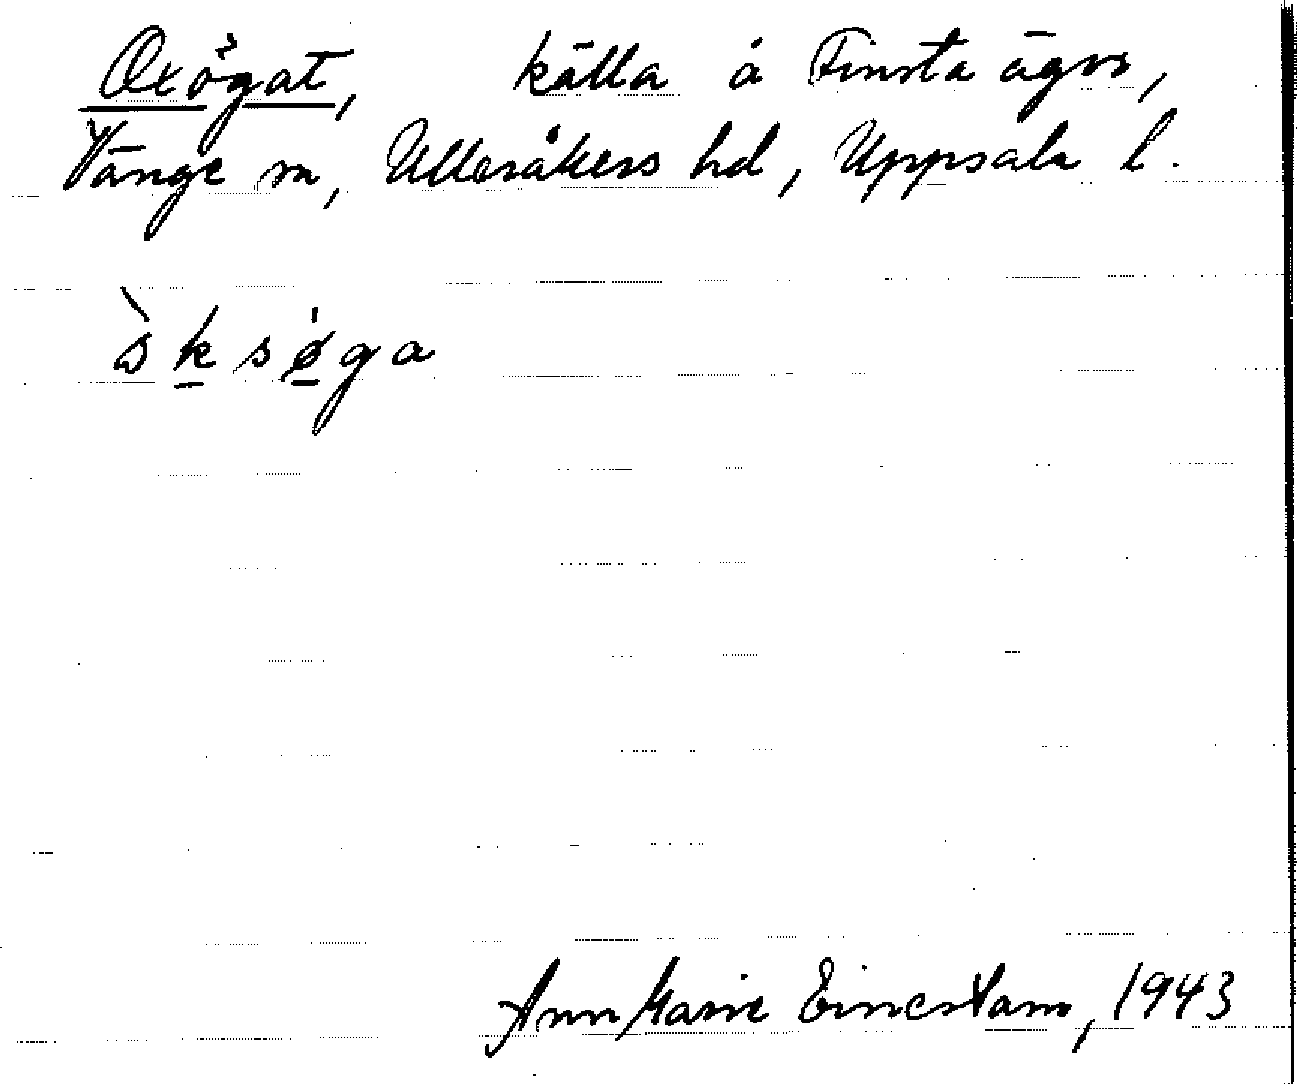 Oxögat, källa å Finsta ägor,
Vänge sn, Ulleråkers hd, Uppsala l.
ò̀ksøga
AnnMarie Einerstam, 1943